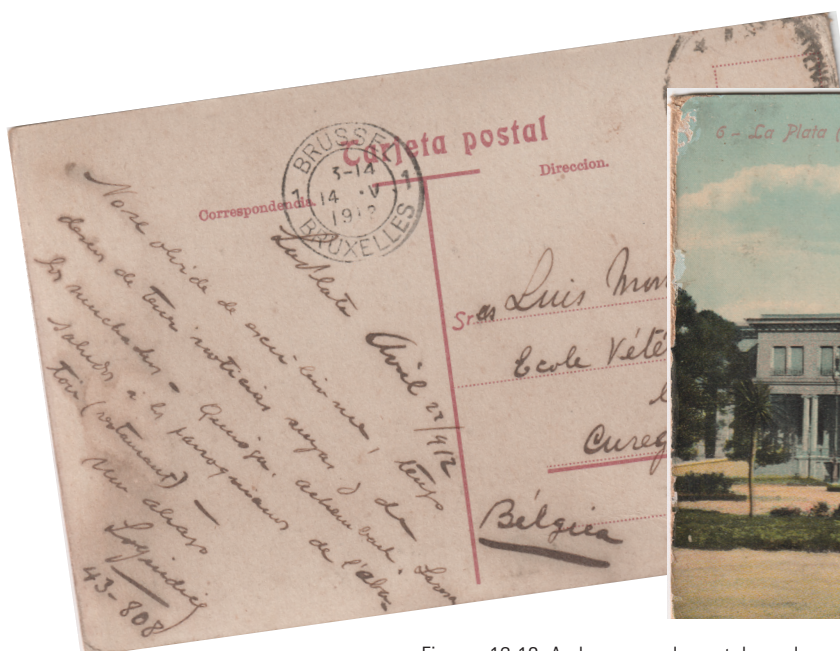 Tarjeta postal
Correspondencia.
Direccion.
BRUSSEL
3-14
14 V
1912
BRUXELLES
1 1
La Plata Avril 22/912
No se olvide de escribirme, tengo
deseos de tener noticias suyas y de
los muchachos - Quiroga,
saludos à los parroquianos de l'aba
toir (restaurant) -
Un abrazo
43-808
Sres Luis
Ecole Vété
Cureg
Bélgica
6 - La Plata (